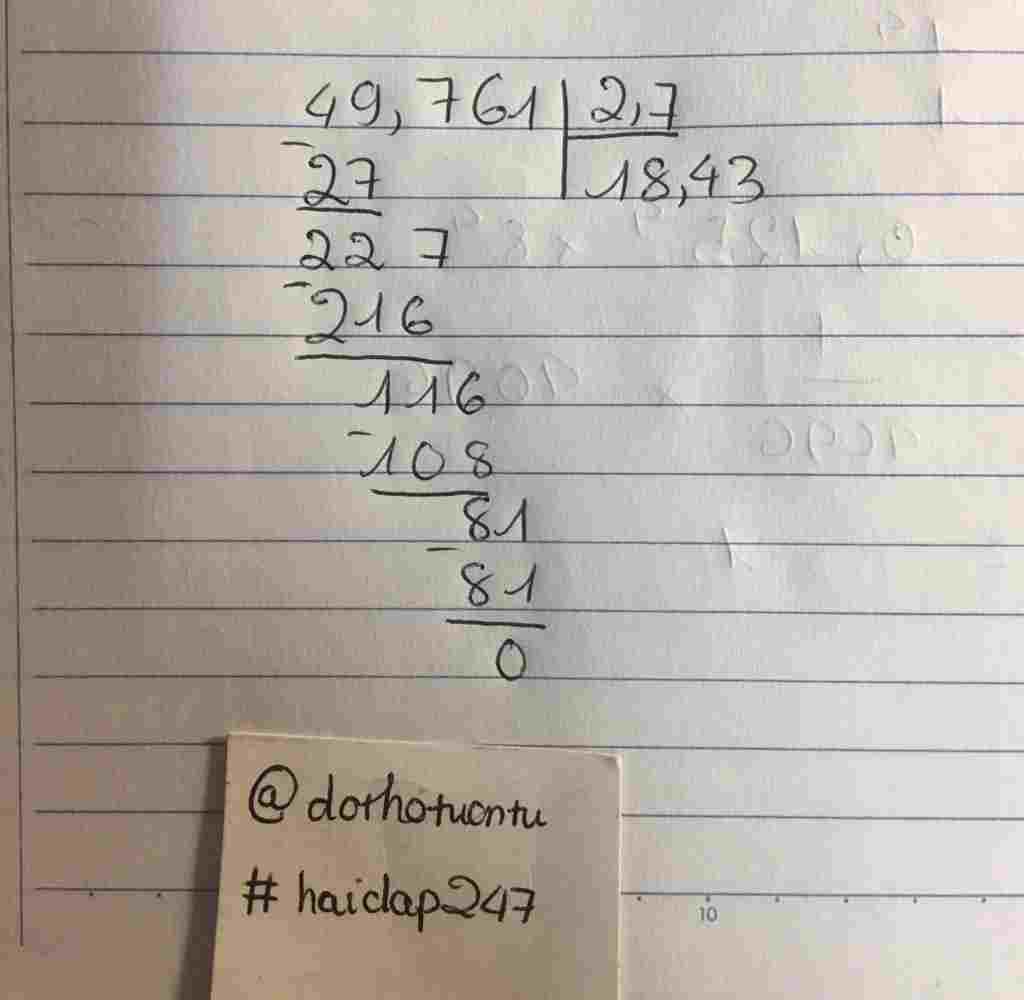 49,761 2,7
- 27 18,43
227
- 216
116
- 108
81
- 81
0
@dorhotuontu
# haidap247
10